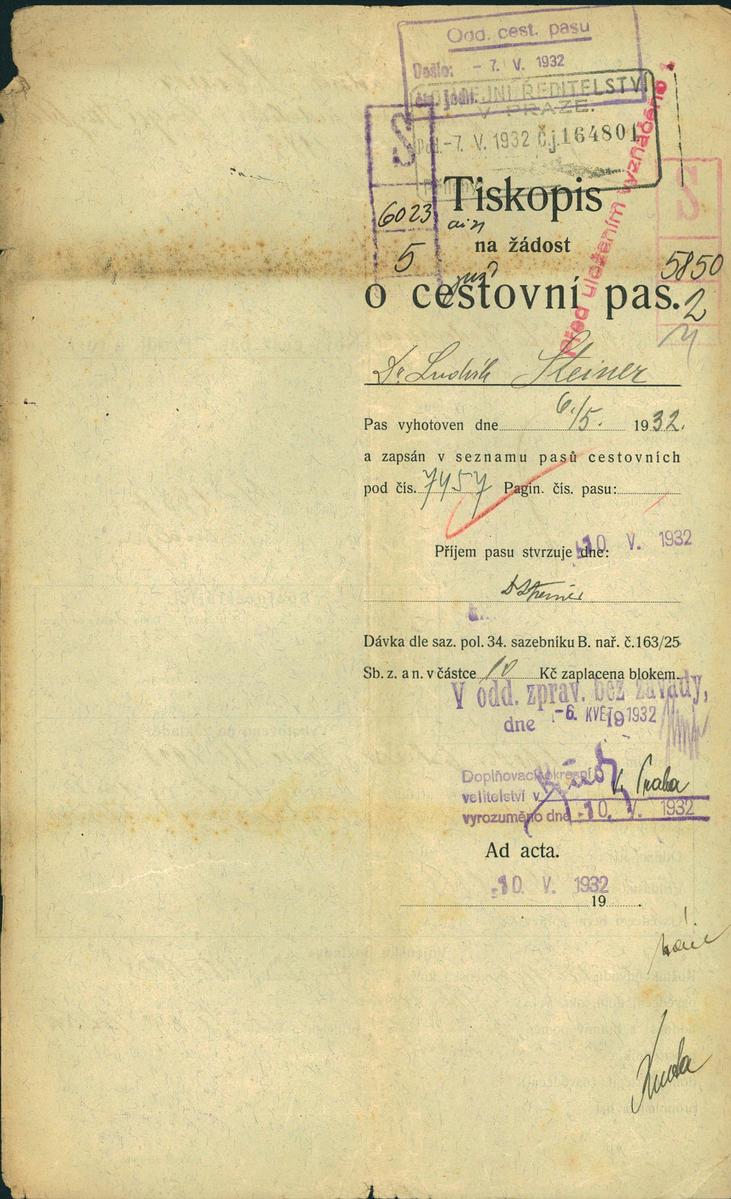 Odd. cest. pasu
Došlo: - 7. V. 1932
ŘEDITELSTVÍ
V PRAZE.
-7. V. 1932 č.j. 164801
S
6023
5
Před uložením vyznačeno
S
5850
2
Tiskopis
na žádost
o cestovní pas.
Dr Ludvík Steiner
Pas vyhotoven dne 6./5. 1932.
a zapsán v seznamu pasů cestovních
pod čís. 7457 Pagin. čís. pasu:
Příjem pasu stvrzuje dne: 10. V. 1932
Dávka dle saz. pol. 34. sazebníku B. nař. č.163/25
Sb. z. a n. v částce 10 Kč zaplacena blokem.
V odd. zprav. bez závady,
dne -6. KVĚT 1932
Doplňovací okresní
velitelství v Praha
vyrozuměno dne -10. V. 1932
Ad acta.
10. V. 1932
19